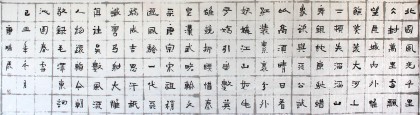 北國風光千里
冰封萬里雪飄
望長城內外惟
餘莽莽大河上
下頓失滔滔山
舞銀蛇原馳蠟
象欲與天公試
比高須晴日看
紅裝素裹分外
妖嬈江山如此
多嬌引無數英
雄競折腰惜秦
皇漢武略輸文
采唐宗宋祖稍
遜風騷一代天
驕成吉思汗祗
識彎弓射大雕
俱往矣數風流
人物還看今朝
敬錄毛澤東詞
沁園春雪